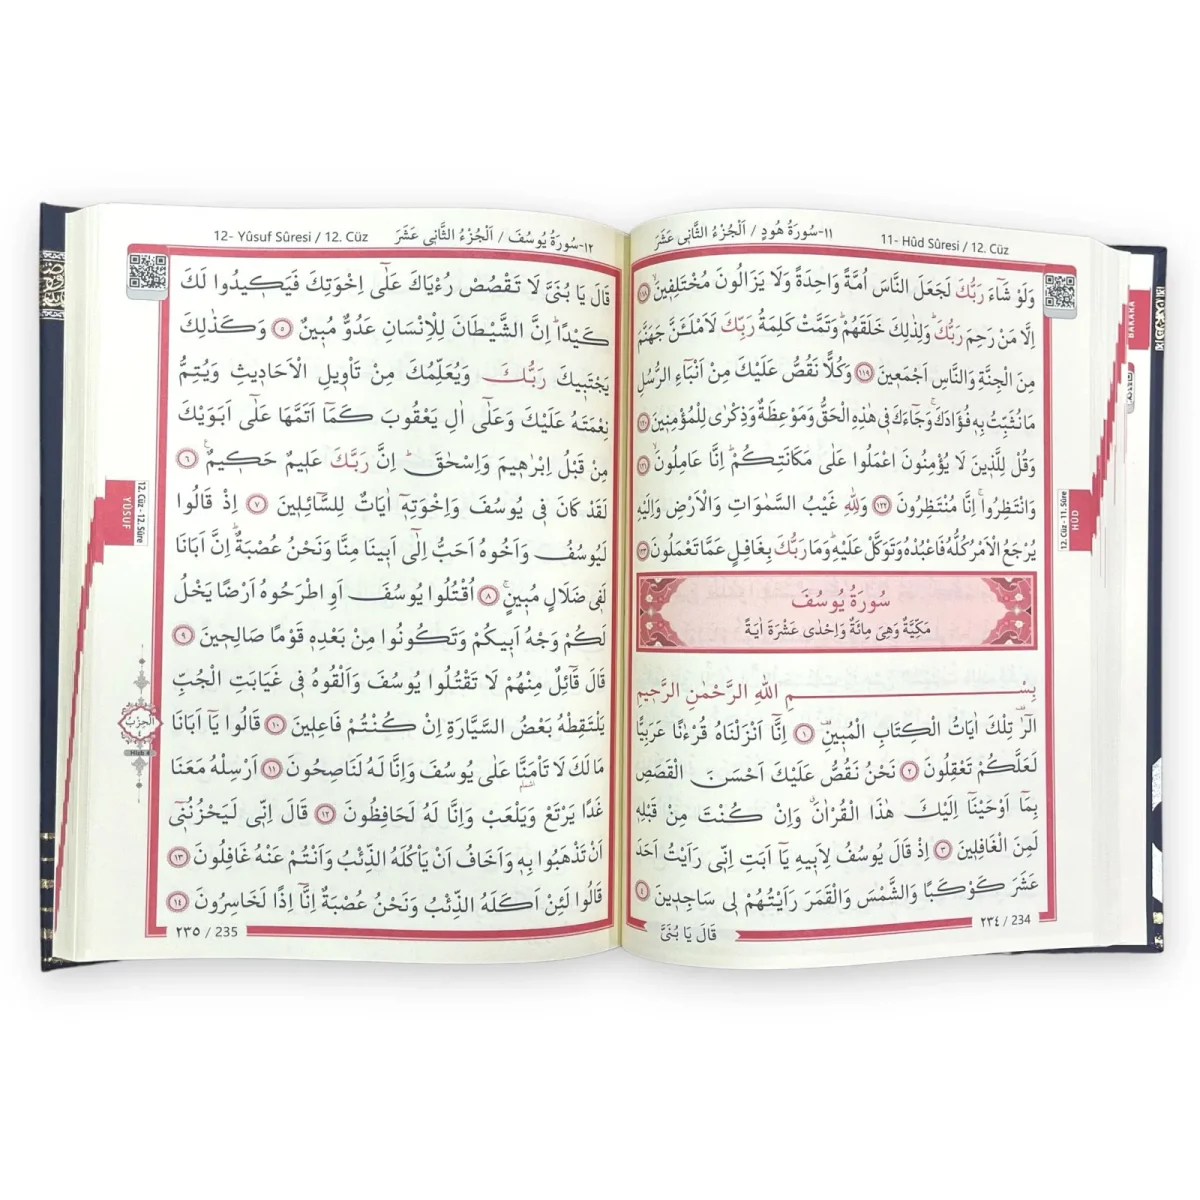 11- Hûd Sûresi / 12. Cüz
١١-سُورَةُ هُودٍ / اَلْجُزْءُ الثَّانِي عَشَرَ
وَلَوْ شَٓاءَ رَبُّكَ لَجَعَلَ النَّاسَ اُمَّةً وَاحِدَةً وَلَا يَزَالُونَ مُخْتَلِف۪ينَۙ ١١٨
اِلَّا مَنْ رَحِمَ رَبُّكَۜ وَلِذٰلِكَ خَلَقَهُمْۜ وَتَمَّتْ كَلِمَةُ رَبِّكَ لَاَمْلَـَٔنَّ جَهَنَّمَ
مِنَ الْجِنَّةِ وَالنَّاسِ اَجْمَع۪ينَ ١١٩ وَكُلًّا نَقُصُّ عَلَيْكَ مِنْ اَنْبَٓاءِ الرُّسُلِ
مَا نُثَبِّتُ بِه۪ فُؤٰادَكَۚ وَجَٓاءَكَ ف۪ي هٰذِهِ الْحَقُّ وَمَوْعِظَةٌ وَذِكْرٰى لِلْمُؤْمِن۪ينَ ١٢٠
وَقُلْ لِلَّذ۪ينَ لَا يُؤْمِنُونَ اعْمَلُوا عَلٰى مَكَانَتِكُمْۜ اِنَّا عَامِلُونَۙ ١٢١
وَانْتَظِرُواۚ اِنَّا مُنْتَظِرُونَ ١٢٢ وَلِلّٰهِ غَيْبُ السَّمٰوَاتِ وَالْاَرْضِ وَاِلَيْهِ
يُرْجَعُ الْاَمْرُ كُلُّهُ فَاعْبُدْهُ وَتَوَكَّلْ عَلَيْهِۜ وَمَا رَبُّكَ بِغَافِلٍ عَمَّا تَعْمَلُونَ ١٢٣
سُورَةُ يُوسُفَ
مَكِّيَّةٌ وَهِيَ مِائَةٌ وَاِحْدٰى عَشْرَةَ اٰيَةً
بِسْمِ اللّٰهِ الرَّحْمٰنِ الرَّح۪يمِ
الٓرٰ۠ تِلْكَ اٰيَاتُ الْكِتَابِ الْمُب۪ينِ۠ ١ اِنَّٓا اَنْزَلْنَاهُ قُرْءٰنًا عَرَبِيًّا
لَعَلَّكُمْ تَعْقِلُونَ ٢ نَحْنُ نَقُصُّ عَلَيْكَ اَحْسَنَ الْقَصَصِ
بِمَٓا اَوْحَيْنَٓا اِلَيْكَ هٰذَا الْقُرْاٰنَۗ وَاِنْ كُنْتَ مِنْ قَبْلِه۪
لَمِنَ الْغَافِل۪ينَ ٣ اِذْ قَالَ يُوسُفُ لِاَب۪يهِ يَٓا اَبَتِ اِنّ۪ي رَاَيْتُ اَحَدَ
عَشَرَ كَوْكَبًا وَالشَّمْسَ وَالْقَمَرَ رَاَيْتُهُمْ ل۪ي سَاجِد۪ينَ ٤
٢٣٤ / 234
قَالَ يَا بُنَيَّ
BAKARA
12. Cüz - 11. Sûre
HÛD
١٢-سُورَةُ يُوسُفَ / اَلْجُزْءُ الثَّانِي عَشَرَ
12- Yûsuf Sûresi / 12. Cüz
قَالَ يَا بُنَيَّ لَا تَقْصُصْ رُءْيَاكَ عَلٰٓى اِخْوَتِكَ فَيَك۪يدُوا لَكَ
كَيْدًاۜ اِنَّ الشَّيْطَانَ لِلْاِنْسَانِ عَدُوٌّ مُب۪ينٌ ٥ وَكَذٰلِكَ
يَجْتَب۪يكَ رَبُّكَ وَيُعَلِّمُكَ مِنْ تَأْو۪يلِ الْاَحَاد۪يثِ وَيُتِمُّ
نِعْمَتَهُ عَلَيْكَ وَعَلٰٓى اٰلِ يَعْقُوبَ كَمَٓا اَتَمَّهَا عَلٰٓى اَبَوَيْكَ
مِنْ قَبْلُ اِبْرٰه۪يمَ وَاِسْحٰقَۜ اِنَّ رَبَّكَ عَل۪يمٌ حَك۪يمٌ۟ ٦
لَقَدْ كَانَ ف۪ي يُوسُفَ وَاِخْوَتِه۪ٓ اٰيَاتٌ لِلسَّٓائِل۪ينَ ٧ اِذْ قَالُوا
لَيُوسُفُ وَاَخُوهُ اَحَبُّ اِلٰٓى اَب۪ينَا مِنَّا وَنَحْنُ عُصْبَةٌۜ اِنَّ اَبَانَا
لَف۪ي ضَلَالٍ مُب۪ينٍۚ ٨ اُقْتُلُوا يُوسُفَ اَوِ اطْرَحُوهُ اَرْضًا يَخْلُ
لَكُمْ وَجْهُ اَب۪يكُمْ وَتَكُونُوا مِنْ بَعْدِه۪ قَوْمًا صَالِح۪ينَ ٩
قَالَ قَٓائِلٌ مِنْهُمْ لَا تَقْتُلُوا يُوسُفَ وَاَلْقُوهُ ف۪ي غَيَابَتِ الْجُبِّ
يَلْتَقِطْهُ بَعْضُ السَّيَّارَةِ اِنْ كُنْتُمْ فَاعِل۪ينَ ١٠ قَالُوا يَٓا اَبَانَا
مَا لَكَ لَا تَأْمَنَّا۬ عَلٰى يُوسُفَ وَاِنَّا لَهُ لَنَاصِحُونَ ١١ اَرْسِلْهُ مَعَنَا
غَدًا يَرْتَعْ وَيَلْعَبْ وَاِنَّا لَهُ لَحَافِظُونَ ١٢ قَالَ اِنّ۪ي لَيَحْزُنُن۪ٓي
اَنْ تَذْهَبُوا بِه۪ وَاَخَافُ اَنْ يَأْكُلَهُ الذِّئْبُ وَاَنْتُمْ عَنْهُ غَافِلُونَ ١٣
قَالُوا لَئِنْ اَكَلَهُ الذِّئْبُ وَنَحْنُ عُصْبَةٌ اِنَّٓا اِذًا لَخَاسِرُونَ ١٤
٢٣٥ / 235
12. Cüz - 12. Sûre
YÛSUF
اَلْحِزْبُ
Hizb 4